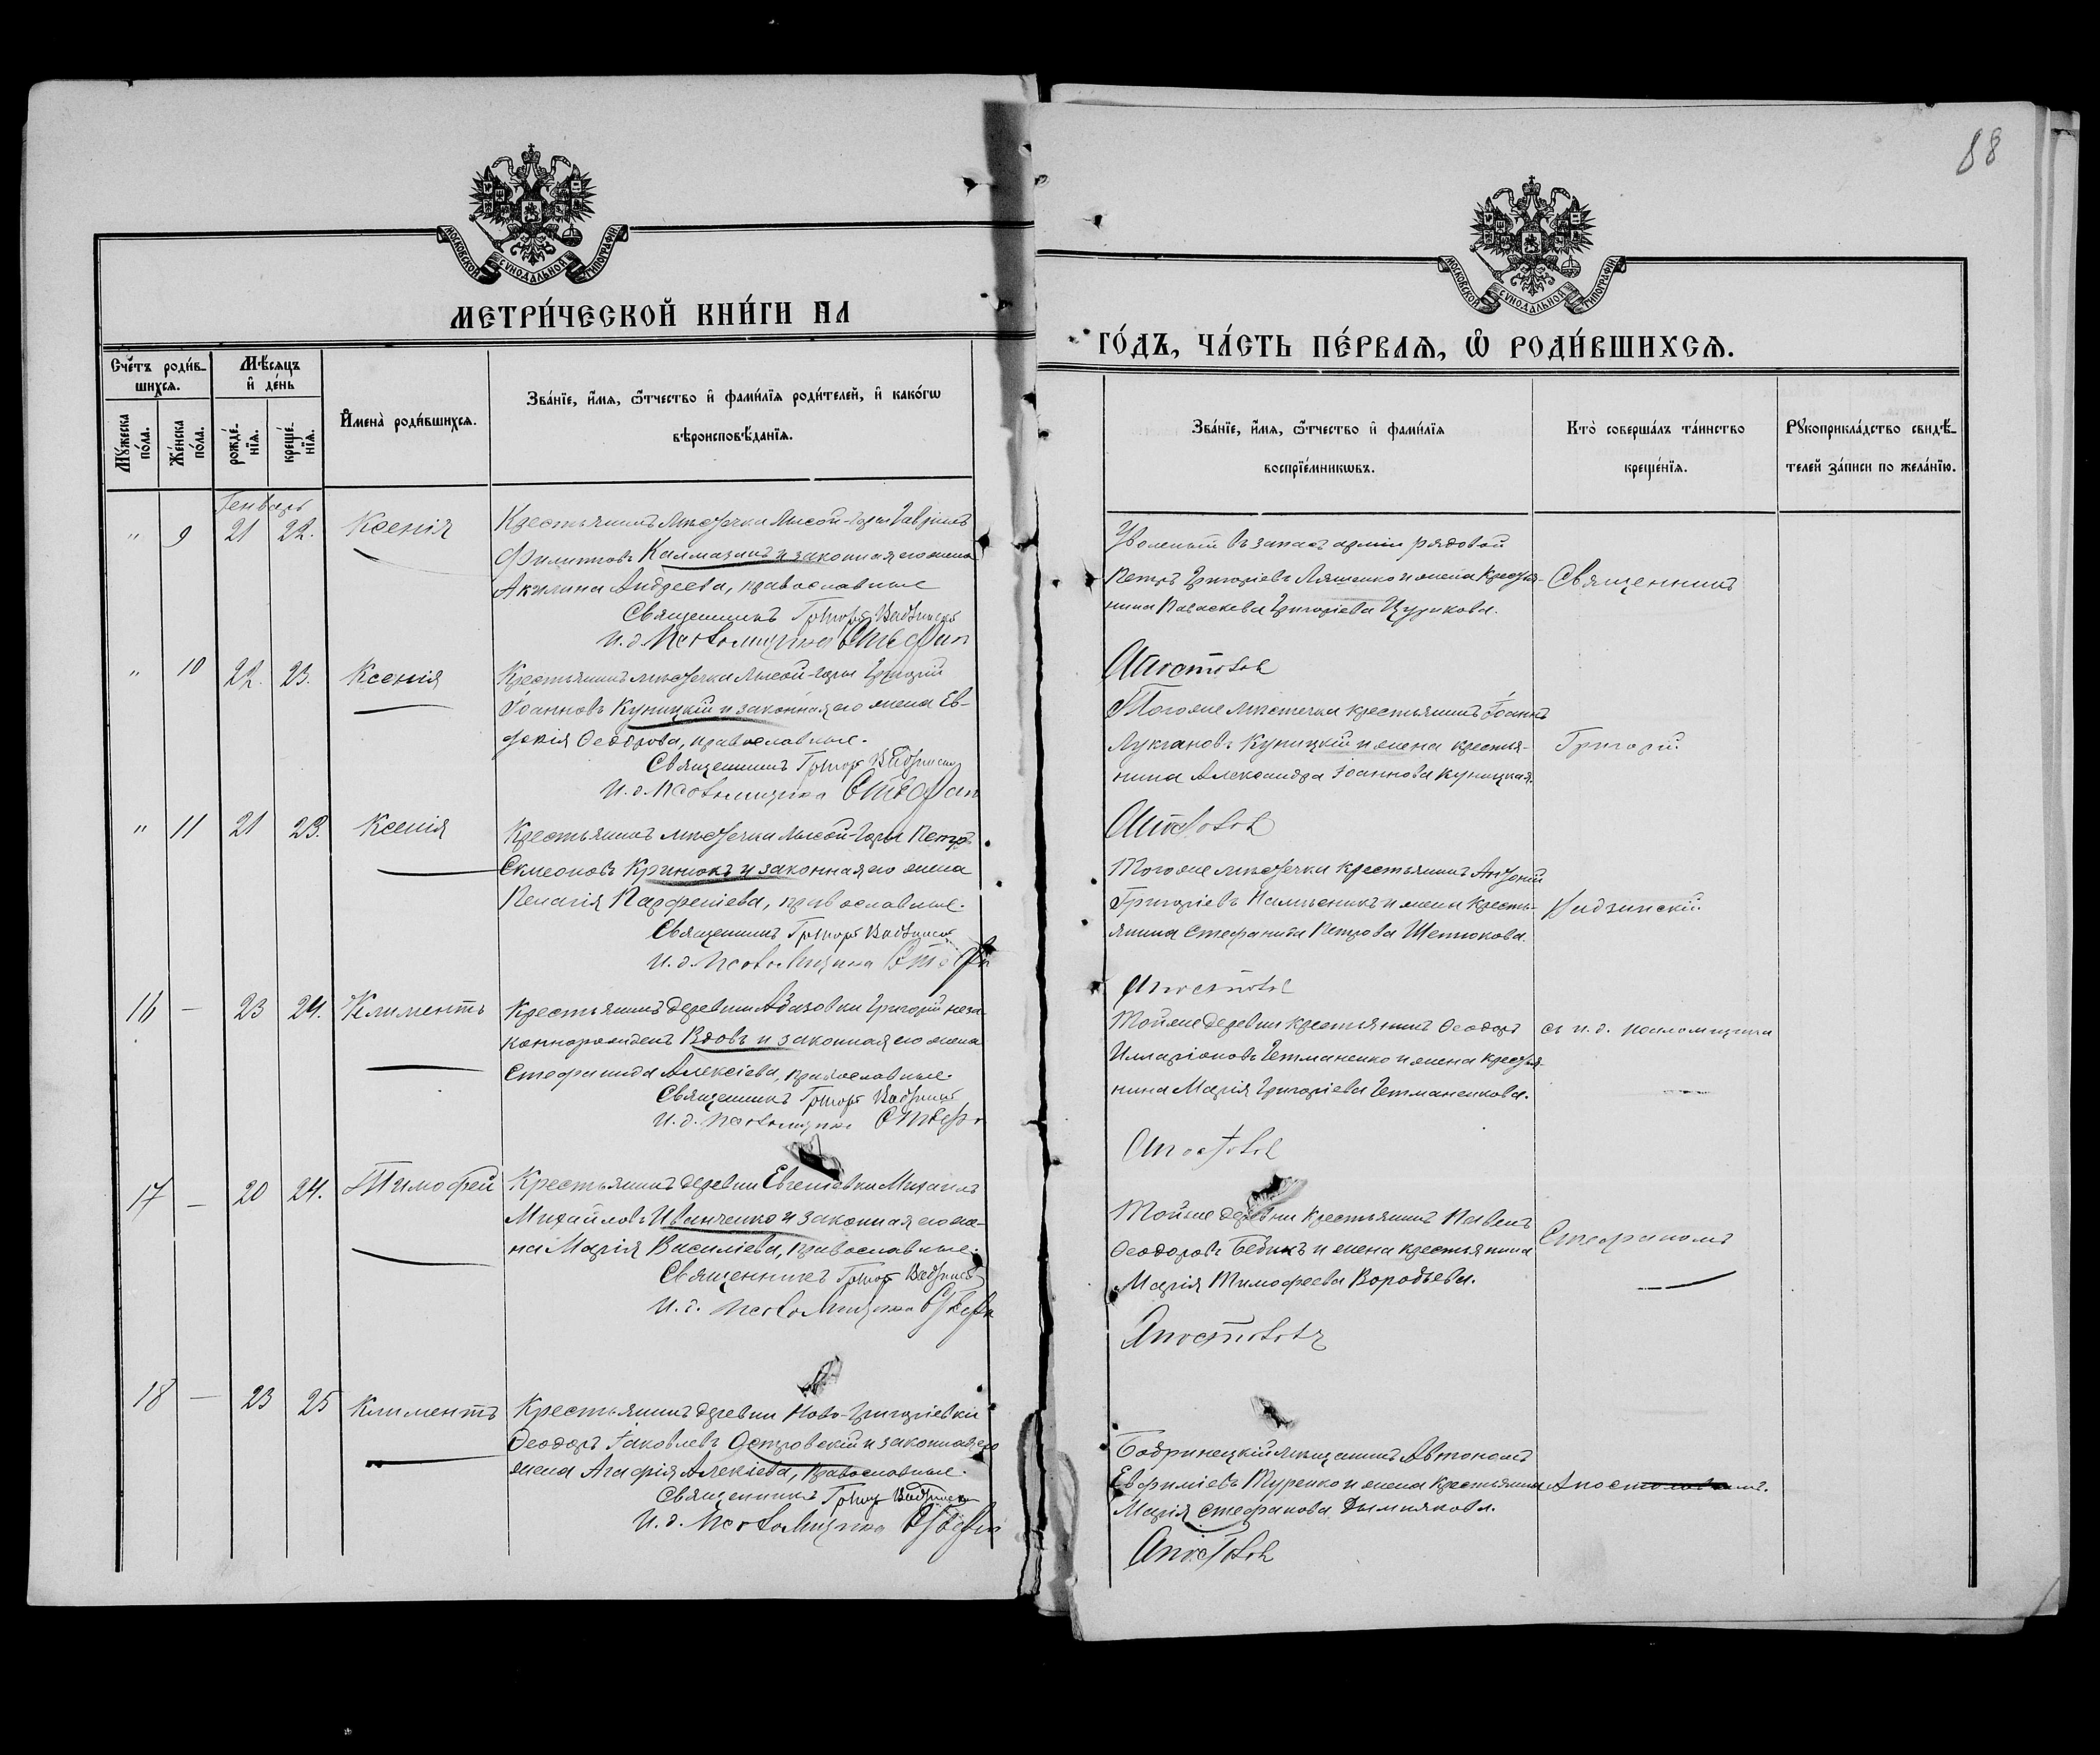 88
МОСКОВСКОЙ СѴНОДАЛЬНОЙ ТИПОГРАФІИ
МОСКОВСКОЙ СѴНОДАЛЬНОЙ ТИПОГРАФІИ
МЕТРИ́ЧЕСКОЙ КНИ́ГИ НА
ГО́ДЪ, ЧА́СТЬ ПЕ́РВАѦ, Ѡ҆ РОДИ́ВШИХСѦ.
Сче́тъ роди́в-
шихсѧ.
Мꙋ́жеска по́ла.
Же́нска по́ла.
Мѣ́сѧцъ и҆ де́нь
рожде́-нїѧ.
креще́-нїѧ.
И҆мена̀ роди́вшихсѧ.
Зва́нїе, и҆́мѧ, ѻ҆́тчество и҆ фами́лїѧ роди́телей, и҆ како́гѡ
вѣроисповѣ́данїѧ.
Зва́нїе, и҆́мѧ, ѻ҆́тчество и҆ фами́лїѧ
воспрїе́мникѡвъ.
Кто̀ соверша́лъ та́инство
креще́нїѧ.
Рꙋкоприкла́дство свидѣ́-
телей за́писи по жела́нїю.
Генварь
" 9 21 22. Ксенія
Крестьянинъ мѣстечка Лысой-Горы Гавріилъ
Филиповъ Калмазанъ и законная его жена
Акилина Андреева, православные
Священникъ Григорій
И. д. псаломщика Стефан
Уволеный въ запасъ арміи рядовой
Петръ Григоріевъ Ляшенко и жена крестья-
нина Параскева Григоріева Цурикова.
Священникъ
Апостолов
" 10 22. 23. Ксенія
Крестьянинъ мѣстечка Лысой-Горы Григорій
Іоанновъ Куницкій и законная его жена Ев-
докія Ѳеодорова, православные.
Священникъ Григорій
И. д. псаломщика Стефан
Тогоже мѣстечка крестьянинъ Іоаннъ
Лукіановъ Куницкій и жена крестья-
нина Александра Іоаннова Куницкая.
Григорій
Апостолов
" 11 21 23. Ксенія
Крестьянинъ мѣстечка Лысой-Горы Петръ
Симеоновъ Кринюкъ и законная его жена
Пелагія Парфеніева, православные.
Священникъ Григорій
И. д. псаломщика Стефа
Тогоже мѣстечка крестьянинъ Антоній
Григоріевъ и жена кресть-
янина Стефанида Петрова
Апостолов
16 – 23 24. Климентъ
Крестьянинъ деревни Абазовки Григорій неза-
коннорожденъ Вдовъ и законная его жена
Стефанида Алексіева, православные.
Священникъ Григорій
И. д. псаломщика Стефа
Тойже деревни крестьянинъ Ѳеодоръ
Илларіоновъ Гетманенко и жена крестья-
нина Марія Григоріева Гетманенкова.
съ и. д. псаломщика
Апостолов
17 – 20 24. Тимофей
Крестьянинъ деревни Евгеніевки Михаилъ
Михайловъ Иванченко и законная его же-
на Марія Василіева, православные.
Священникъ Григорій
И. д. псаломщика Стефа
Тойже деревни крестьянинъ Павелъ
Ѳеодоровъ Бедикъ и жена крестьянина
Марія Тимофеева Воробьева.
Стефаномъ
Апостолов
18 – 23 25 Климентъ
Крестьянинъ деревни Ново-Григоріевки
Ѳеодоръ Іаковлевъ Островскій и законная его
жена Агафія Алексіева, православные.
Священникъ Григорій
И. д. псаломщика Стефан
Бобринецкій мѣщанинъ Автономъ
Евфиміевъ Туренко и жена крестьянина
Марія Стефанова Дымнякова.
Апостоловымъ.
Апостолов